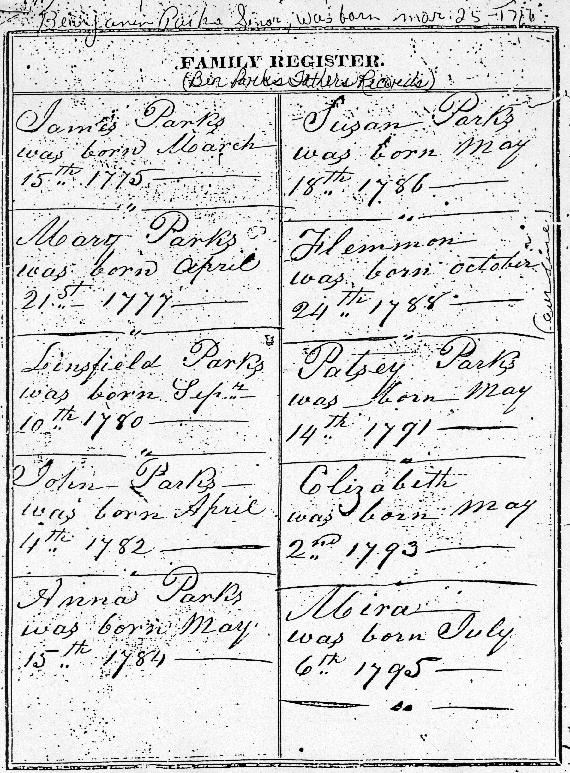 Benjamin Parks Senor, was born mar. 25
FAMILY REGISTER.
(Ben Parks Fathers Records)
James Parks
was born March
15th 1775
Mary Parks
was born April
21st 1777
Linsfield Parks
was born Sep
10th 1780
John Parks
was born April
4th 1782
Anna Parks
was born May
15th 1784
Susan Parks
was born May
18th 1786
Flemmon
was born october
24th 1788
(our line)
Patsey Parks
was born May
14th 1791
Elizabeth
was born May
2nd 1793
Mira
was born July
6th 1795